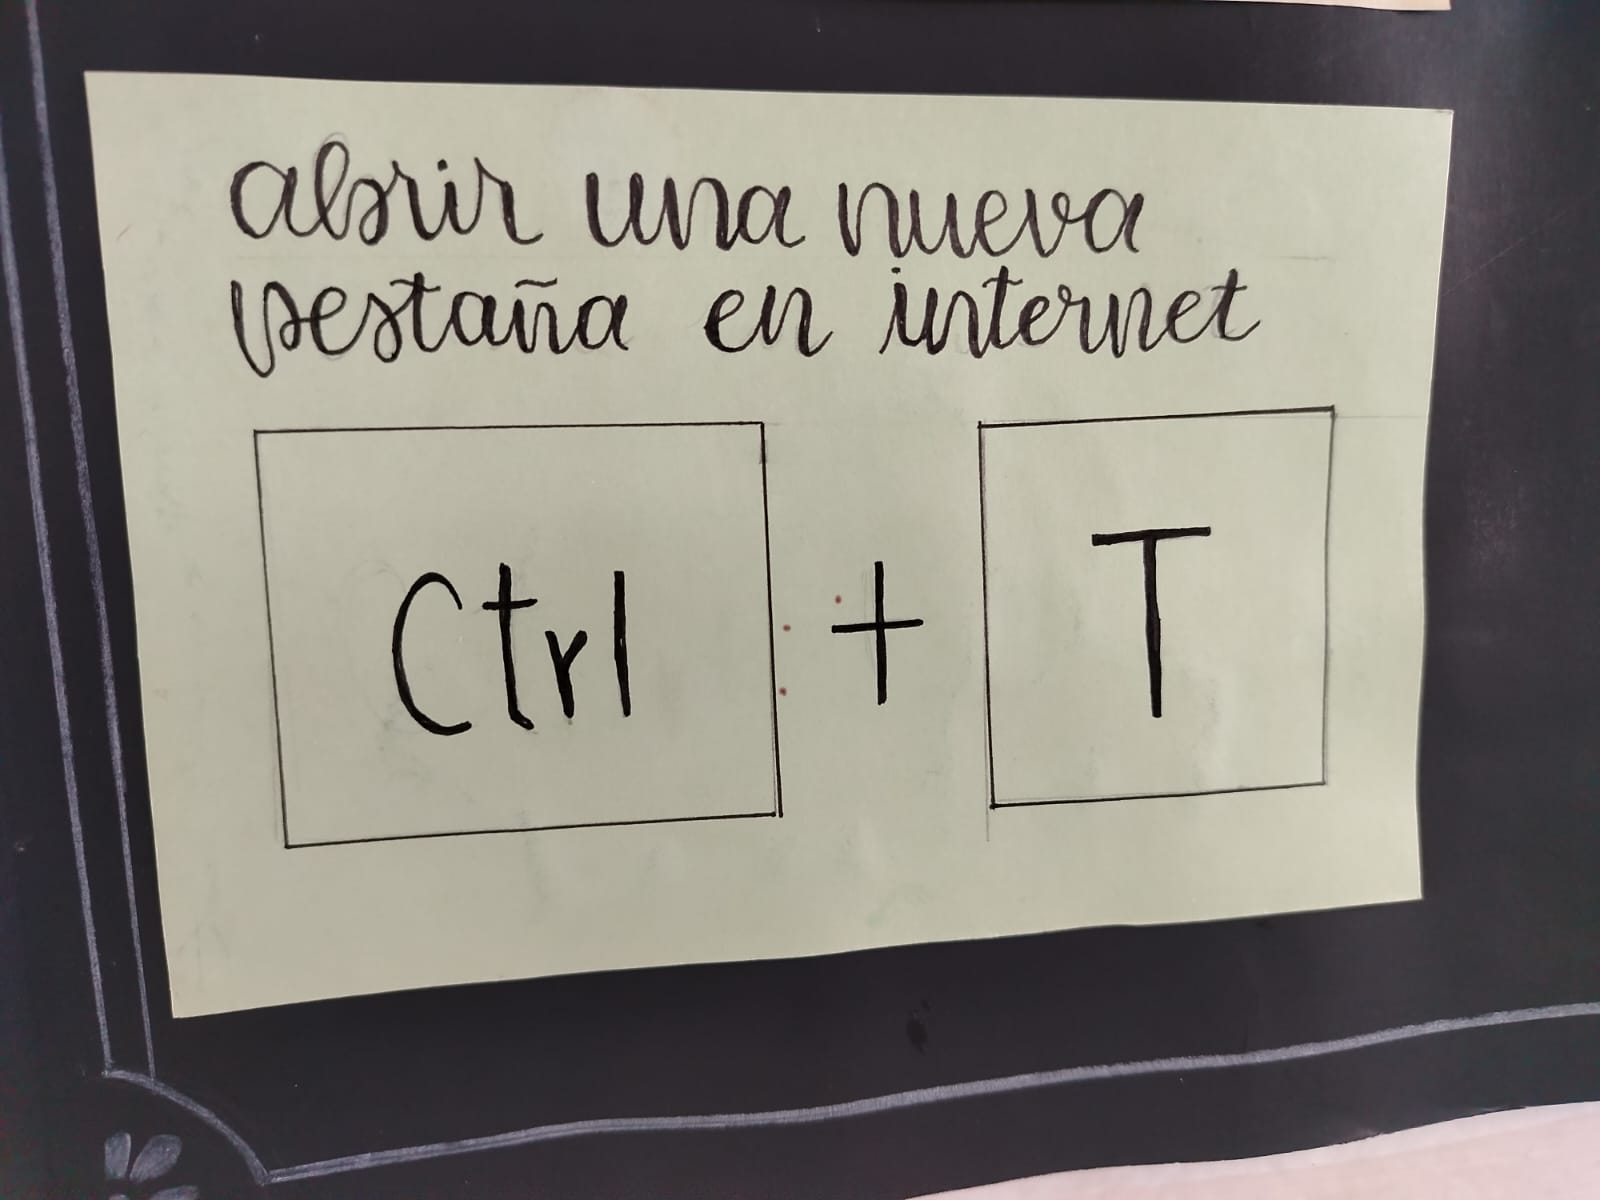 abrir una nueva
pestaña en internet
Ctrl + T